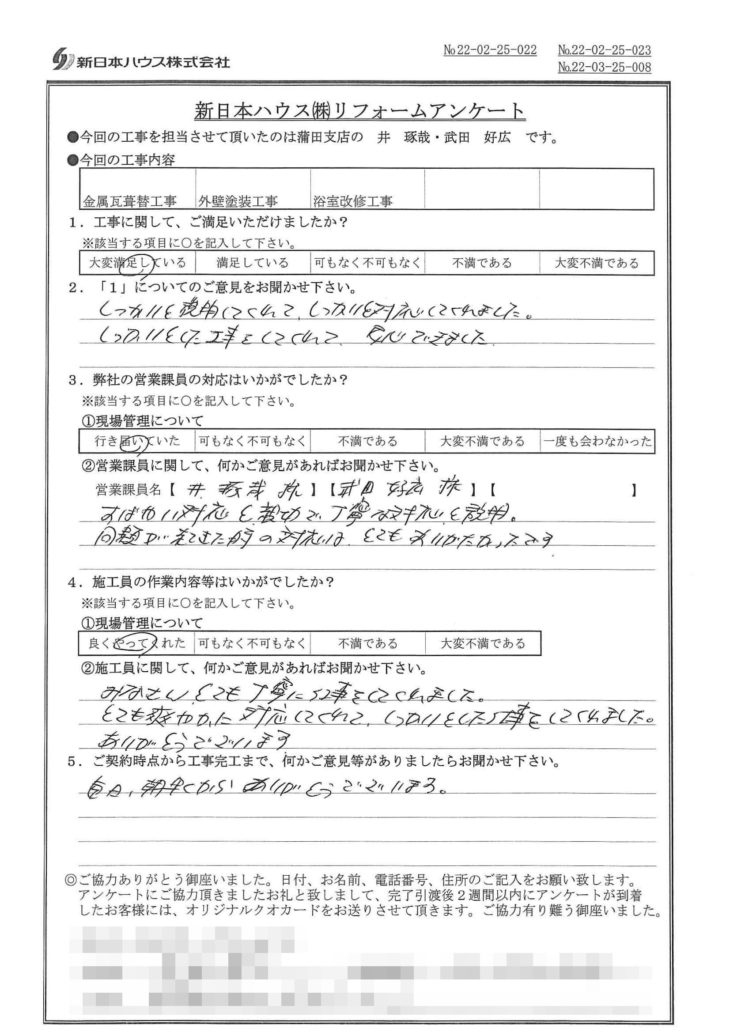 新日本ハウス株式会社
№22-02-25-022 №22-02-25-023
№22-03-25-008
新日本ハウス㈱リフォームアンケート
●今回の工事を担当させて頂いたのは蒲田支店の 井 琢哉・武田 好広 です。
●今回の工事内容
金属瓦葺替工事 外壁塗装工事 浴室改修工事
1．工事に関して、ご満足いただけましたか？
※該当する項目に○を記入して下さい。
大変満足している 満足している 可もなく不可もなく 不満である 大変不満である
2．「1」についてのご意見をお聞かせ下さい。
しっかりと説明してくれて、しっかりと対応してくれました。
しっかりとした工事をしてくれて、安心できました
3．弊社の営業課員の対応はいかがでしたか？
※該当する項目に○を記入して下さい。
①現場管理について
行き届いていた 可もなく不可もなく 不満である 大変不満である 一度も会わなかった
②営業課員に関して、何かご意見があればお聞かせ下さい。
営業課員名【 井 琢哉 様 】【 武田 好広 様 】【 】
すばやい対応と親切で、丁寧な対応と説明。
問題が出てきた時の対応は、とてもありがたかったです
4．施工員の作業内容等はいかがでしたか？
※該当する項目に○を記入して下さい。
①現場管理について
良くやってくれた 可もなく不可もなく 不満である 大変不満である
②施工員に関して、何かご意見があればお聞かせ下さい。
みなさん、とても丁寧に工事をしてくれました。
とても爽やかに対応してくれて、しっかりとした工事をしてくれました。
ありがとうございます
5．ご契約時点から工事完工まで、何かご意見等がありましたらお聞かせ下さい。
毎日、朝早くから ありがとうございます。
◎ご協力ありがとう御座いました。日付、お名前、電話番号、住所のご記入をお願い致します。
アンケートにご協力頂きましたお礼と致しまして、完了引渡後２週間以内にアンケートが到着
したお客様には、オリジナルクオカードをお送りさせて頂きます。ご協力有り難う御座いました。